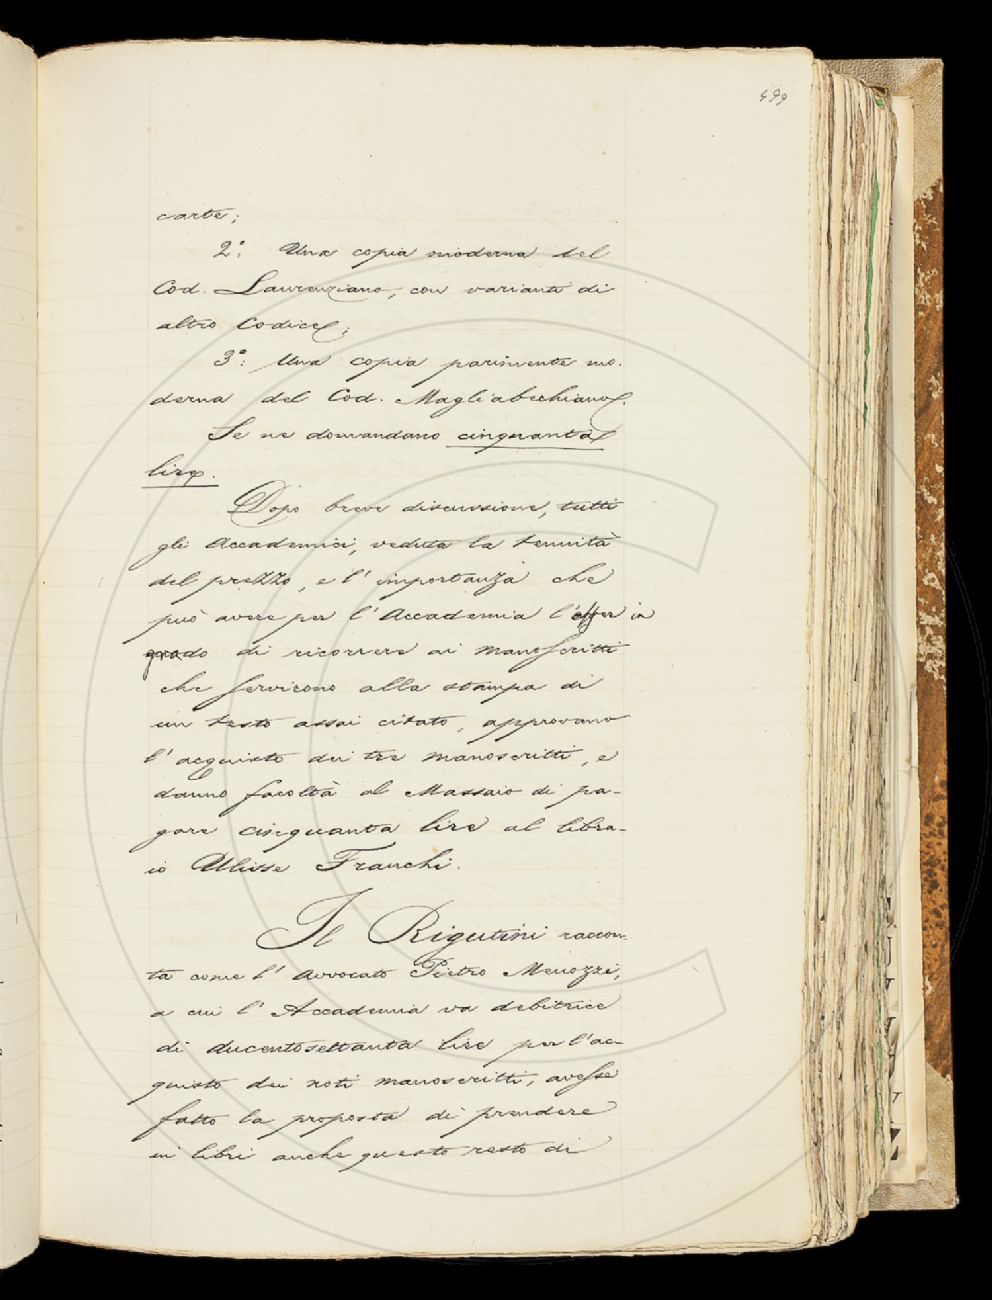 499
carte;
2°: Una copia moderna del
Cod. Laurenziano, con varianti di
altro Codice;
3°: Una copia parimente mo-
derna del Cod. Magliabechiano.
Se ne domandano cinquanta
lire.
Dopo breve discussione, tutti
gli Accademici, veduta la tenuità
del prezzo, e l' importanza che
può avere per l' Accademia l'esser in
grado di ricorrere ai manoscritti
che servirono alla stampa di
un testo assai citato, approvano
l' acquisto dei tre manoscritti, e
danno facoltà al Massaio di pa-
gare cinquanta lire al libra-
io Ulisse Franchi.
Il Rigutini raccon-
ta come l' Avvocato Pietro Menozzi,
a cui l' Accademia va debitrice
di ducentosettanta lire per l'ac-
quisto dei noti manoscritti, avesse
fatto la proposta di prendere
in libri anche questo resto di